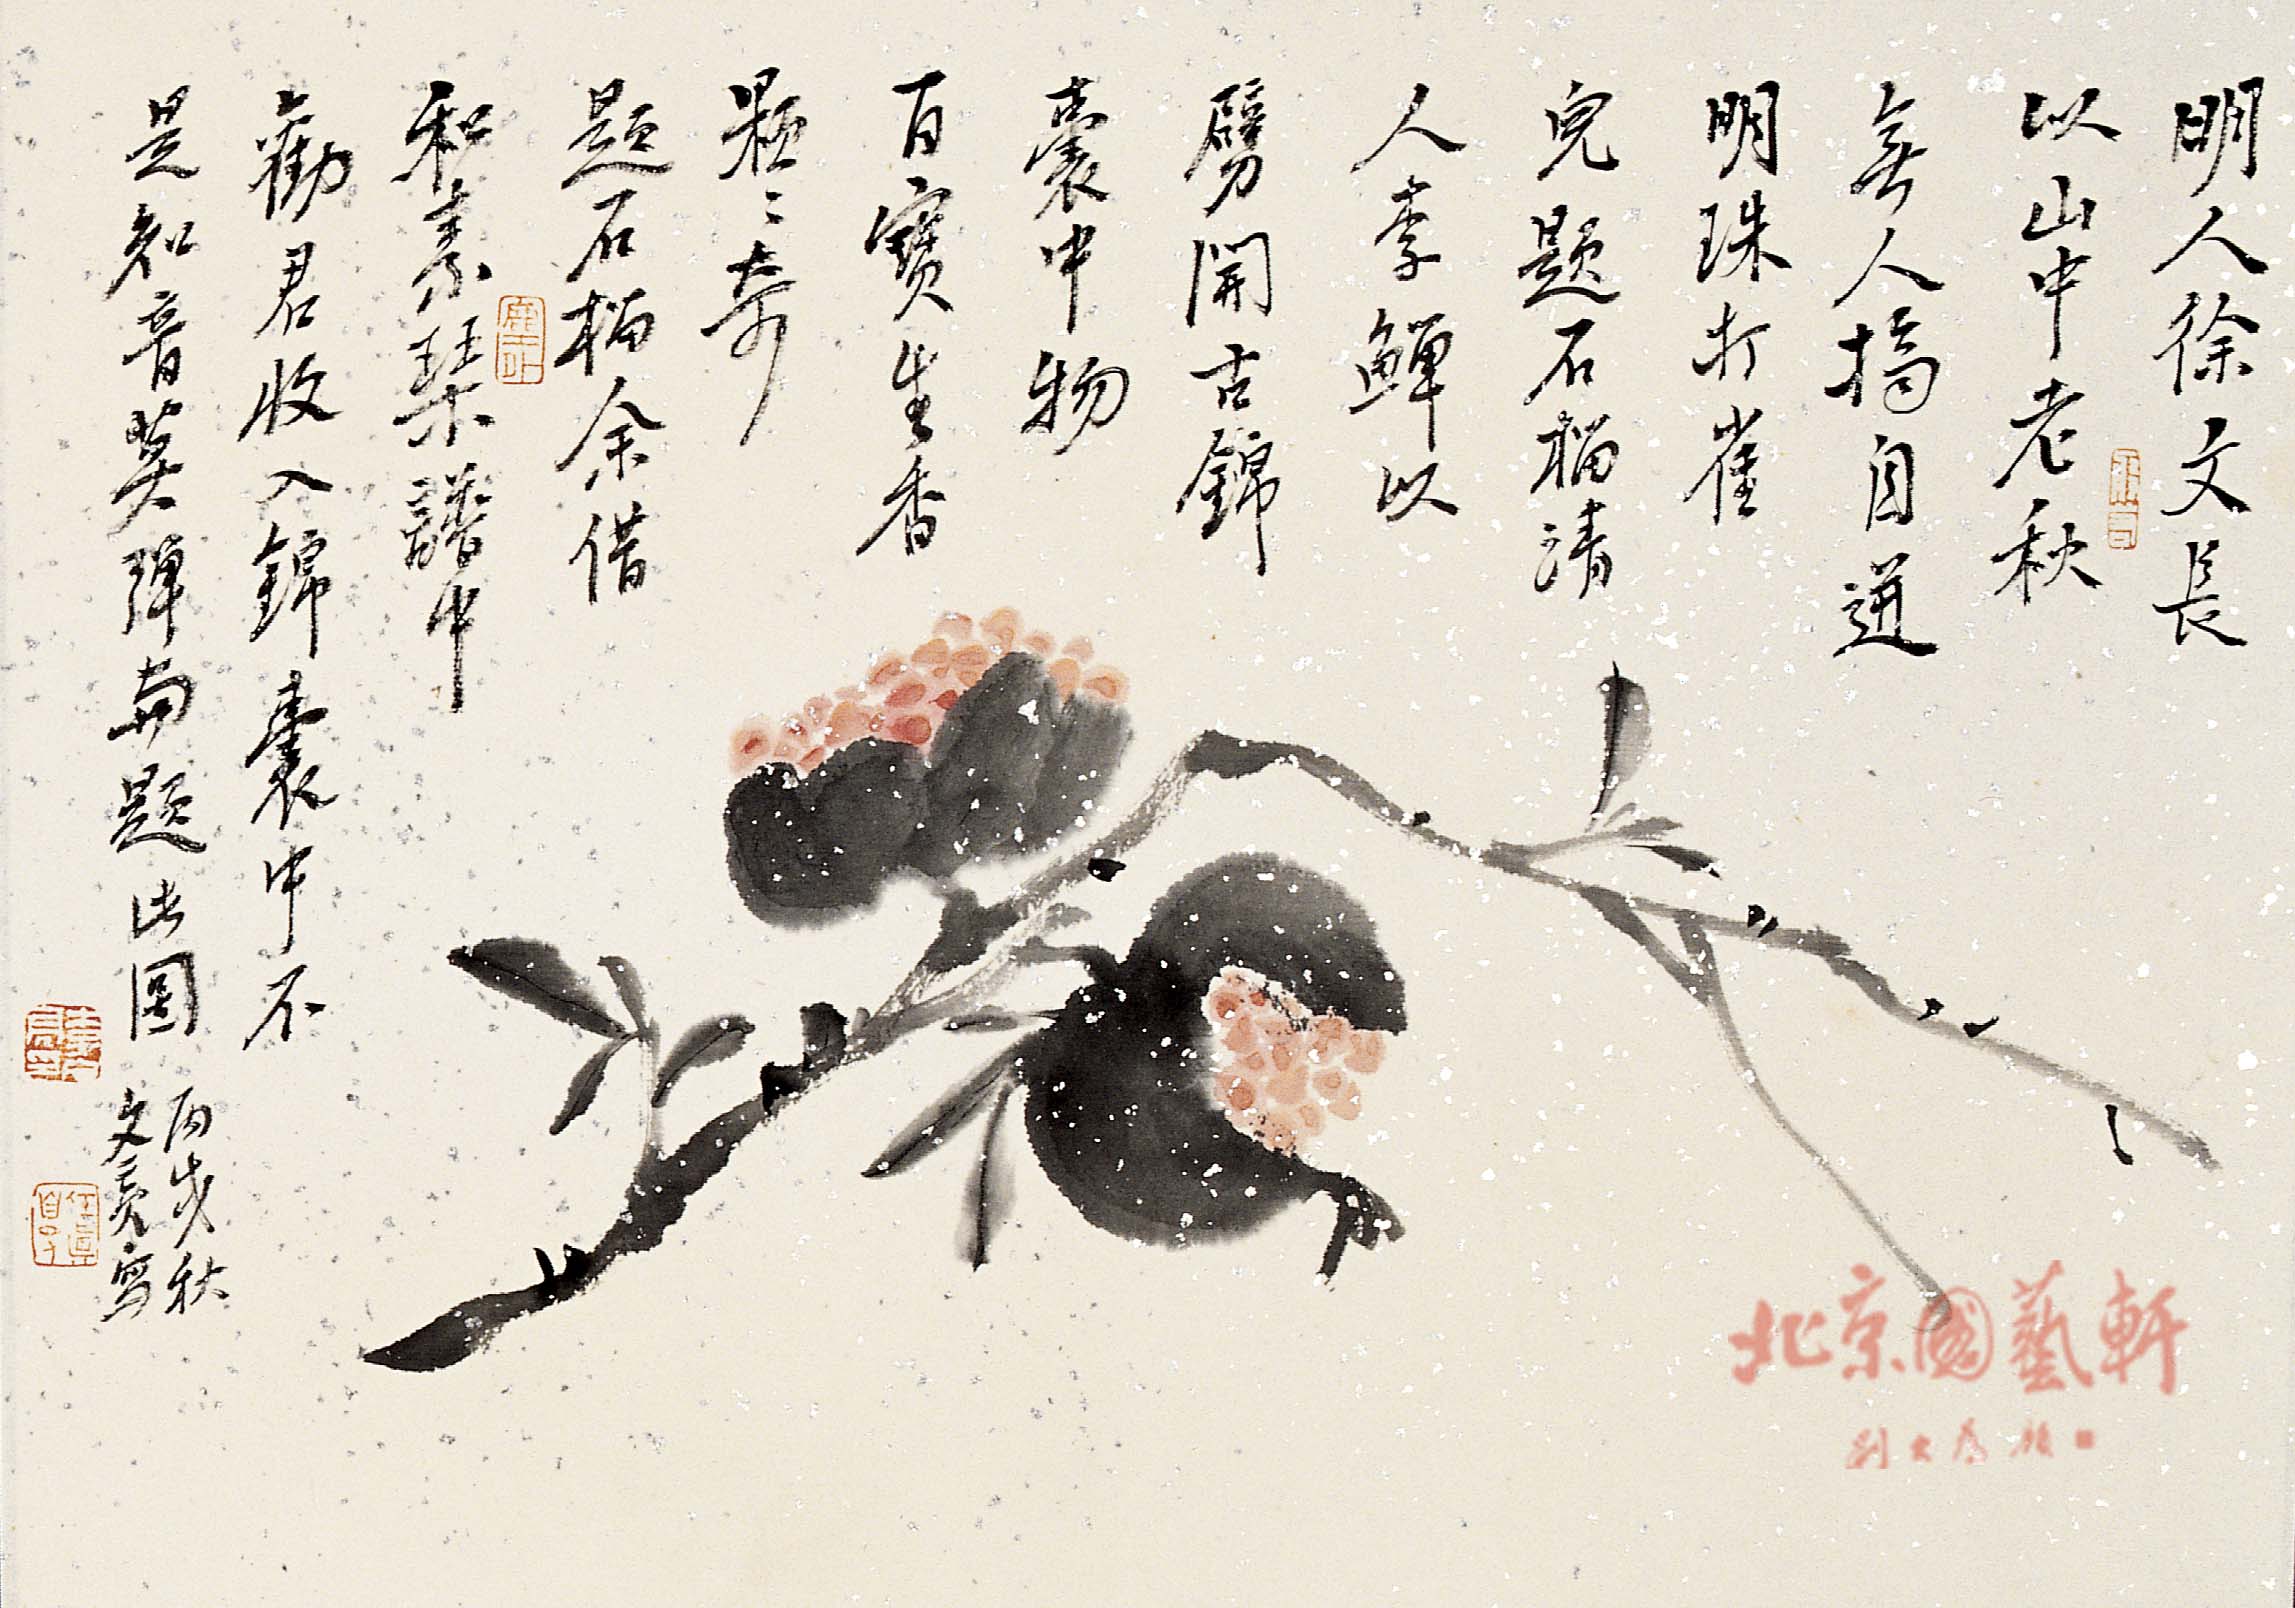 明人徐文長
以山中老秋
無人摘自迸
明珠打雀
兒題石榴清
人李鱓以
劈開古錦
囊中物
百寶生香
顆〻奇
題石榴余借
和素琴譜中
勸君收入錦囊中不
是知音莫彈両題此圖
丙戌秋
文奐寫
北京國藝軒